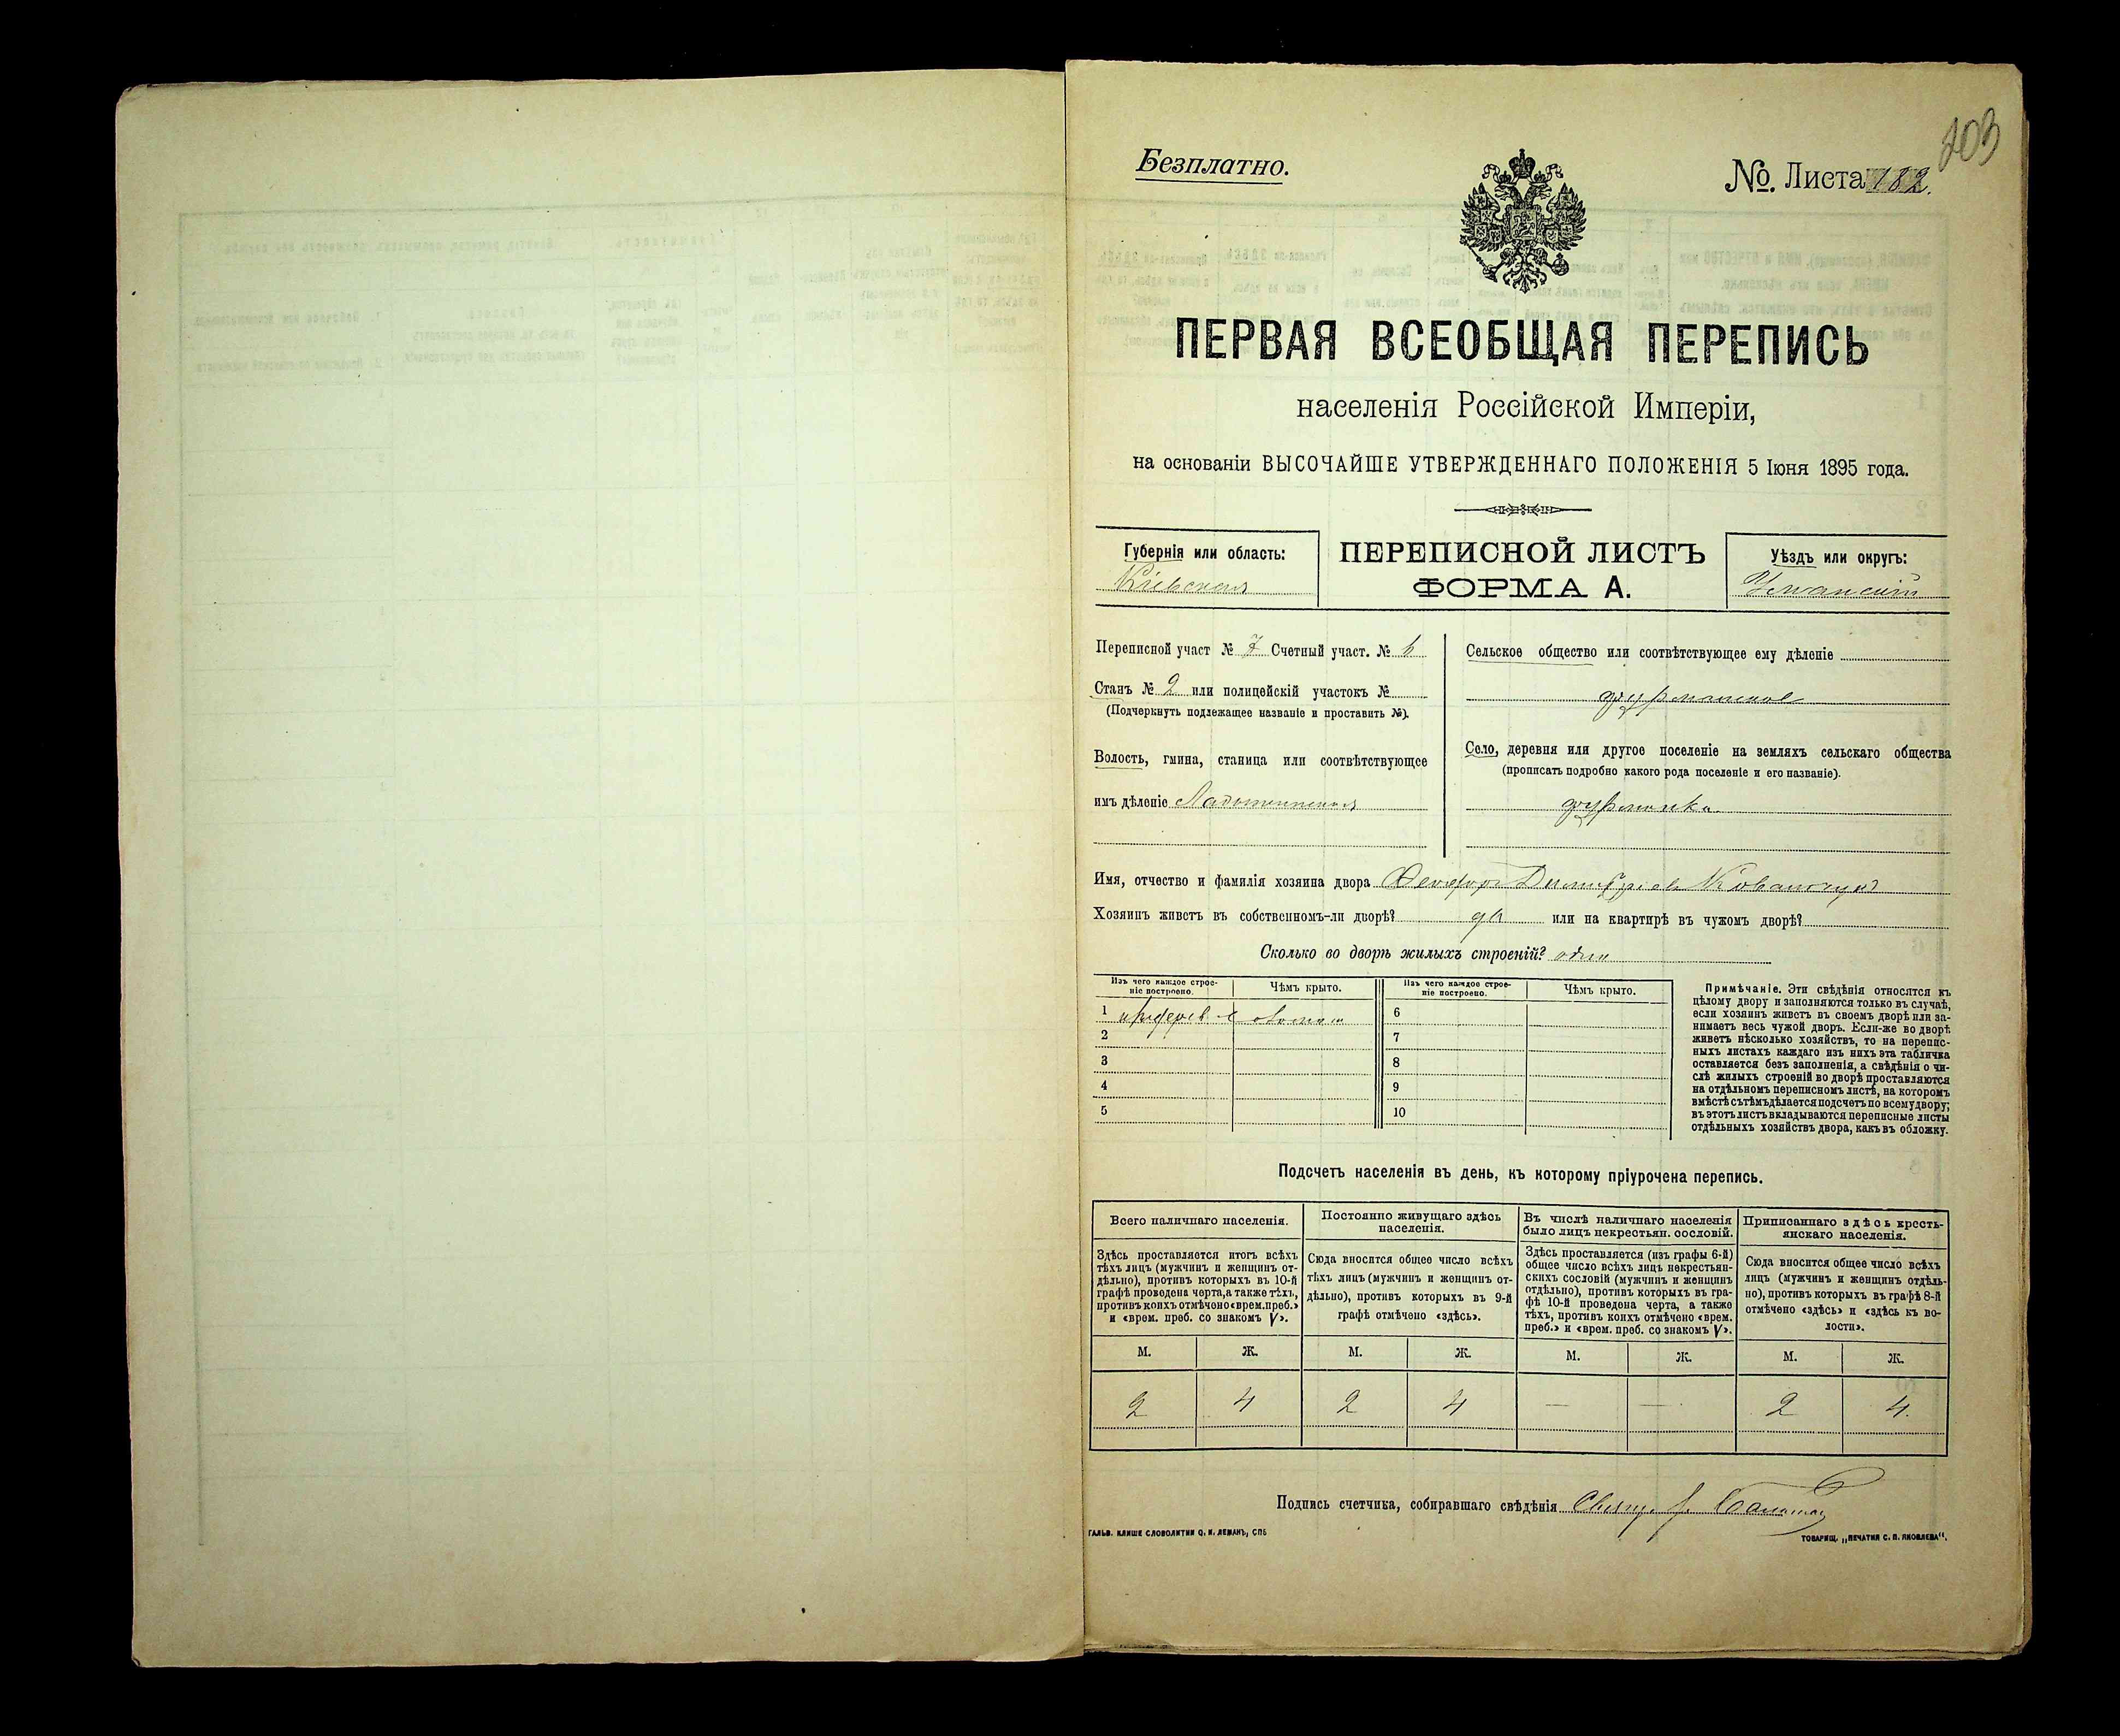 203
Безплатно.
№. Листа 182.
ПЕРВАЯ ВСЕОБЩАЯ ПЕРЕПИСЬ
населенія Россійской Имперіи,
на основаніи ВЫСОЧАЙШЕ УТВЕРЖДЕННАГО ПОЛОЖЕНІЯ 5 Іюня 1895 года.
Губернія или область:
Кіевская
ПЕРЕПИСНОЙ ЛИСТЪ
ФОРМА А.
Уѣздъ или округъ:
Уманскій
Переписной участ № 7 Счетный участ. № 6
Станъ № 2 или полицейскій участокъ №
(Подчеркнуть подлежащее названіе и проставить №).
Волость, гмина, станица или соотвѣтствующее
имъ дѣленіе Ладыженская
Сельское общество или соотвѣтствующее ему дѣленіе
фурманское
Село, деревня или другое поселеніе на земляхъ сельскаго общества
(прописать подробно какого рода поселеніе и его названіе).
фурманка
Имя, отчество и фамилія хозяина двора Феофор Димитріев
Хозяинъ живетъ въ собственномъ-ли дворѣ? да или на квартирѣ въ чужомъ дворѣ?
Сколько во дворѣ жилыхъ строеній? один
Изъ чего каждое строе-
ніе построено.
Чѣмъ крыто.
Изъ чего каждое строе-
ніе построено.
Чѣмъ крыто.
1 соломой
2
3
4
5
6
7
8
9
10
Примѣчаніе. Эти свѣдѣнія относятся къ
цѣлому двору и заполняются только въ случаѣ,
если хозяинъ живетъ въ своемъ дворѣ или за-
нимаетъ весь чужой дворъ. Если-же во дворѣ
живетъ нѣсколько хозяйствъ, то на перепис-
ныхъ листахъ каждаго изъ нихъ эта табличка
оставляется безъ заполненія, а свѣдѣнія о чи-
слѣ жилыхъ строеній во дворѣ проставляются
на отдѣльномъ переписномъ листѣ, на которомъ
вмѣстѣ съ тѣмъ дѣлается подсчетъ по всему двору;
въ этотъ листъ вкладываются переписные листы
отдѣльныхъ хозяйствъ двора, какъ въ обложку.
Подсчетъ населенія въ день, къ которому пріурочена перепись.
Всего наличнаго населенія.
Здѣсь проставляется итогъ всѣхъ
тѣхъ лицъ (мужчинъ и женщинъ от-
дѣльно), противъ которыхъ въ 10-й
графѣ проведена черта, а также тѣхъ,
противъ коихъ отмѣчено «врем. преб.»
и «врем. преб. со знакомъ V».
Постоянно живущаго здѣсь
населенія.
Сюда вносится общее число всѣхъ
тѣхъ лицъ (мужчинъ и женщинъ от-
дѣльно), противъ которыхъ въ 9-й
графѣ отмѣчено «здѣсь».
Въ числѣ наличнаго населенія
было лицъ некрестьян. сословій.
Здѣсь проставляется (изъ графы 6-й)
общее число всѣхъ лицъ некрестьян-
скихъ сословій (мужчинъ и женщинъ
отдѣльно), противъ которыхъ въ гра-
фѣ 10-й проведена черта, а также
тѣхъ, противъ коихъ отмѣчено «врем.
преб.» и «врем. преб. со знакомъ V».
Приписаннаго здѣсь кресть-
янскаго населенія.
Сюда вносится общее число всѣхъ
лицъ (мужчинъ и женщинъ отдѣль-
но), противъ которыхъ въ графѣ 8-й
отмѣчено «здѣсь» и «здѣсь къ во-
лости».
М. Ж. М. Ж. М. Ж. М. Ж.
2 4 2 4 — — 2 4.
Подпись счетчика, собиравшаго свѣдѣнія Свящ.
ГАЛЬВ. КЛИШЕ СЛОВОЛИТНИ О. И. ЛЕМАНЪ, СПБ
ТОВАРИЩ. „ПЕЧАТНЯ С. П. ЯКОВЛЕВА".